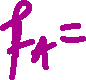 f_A =